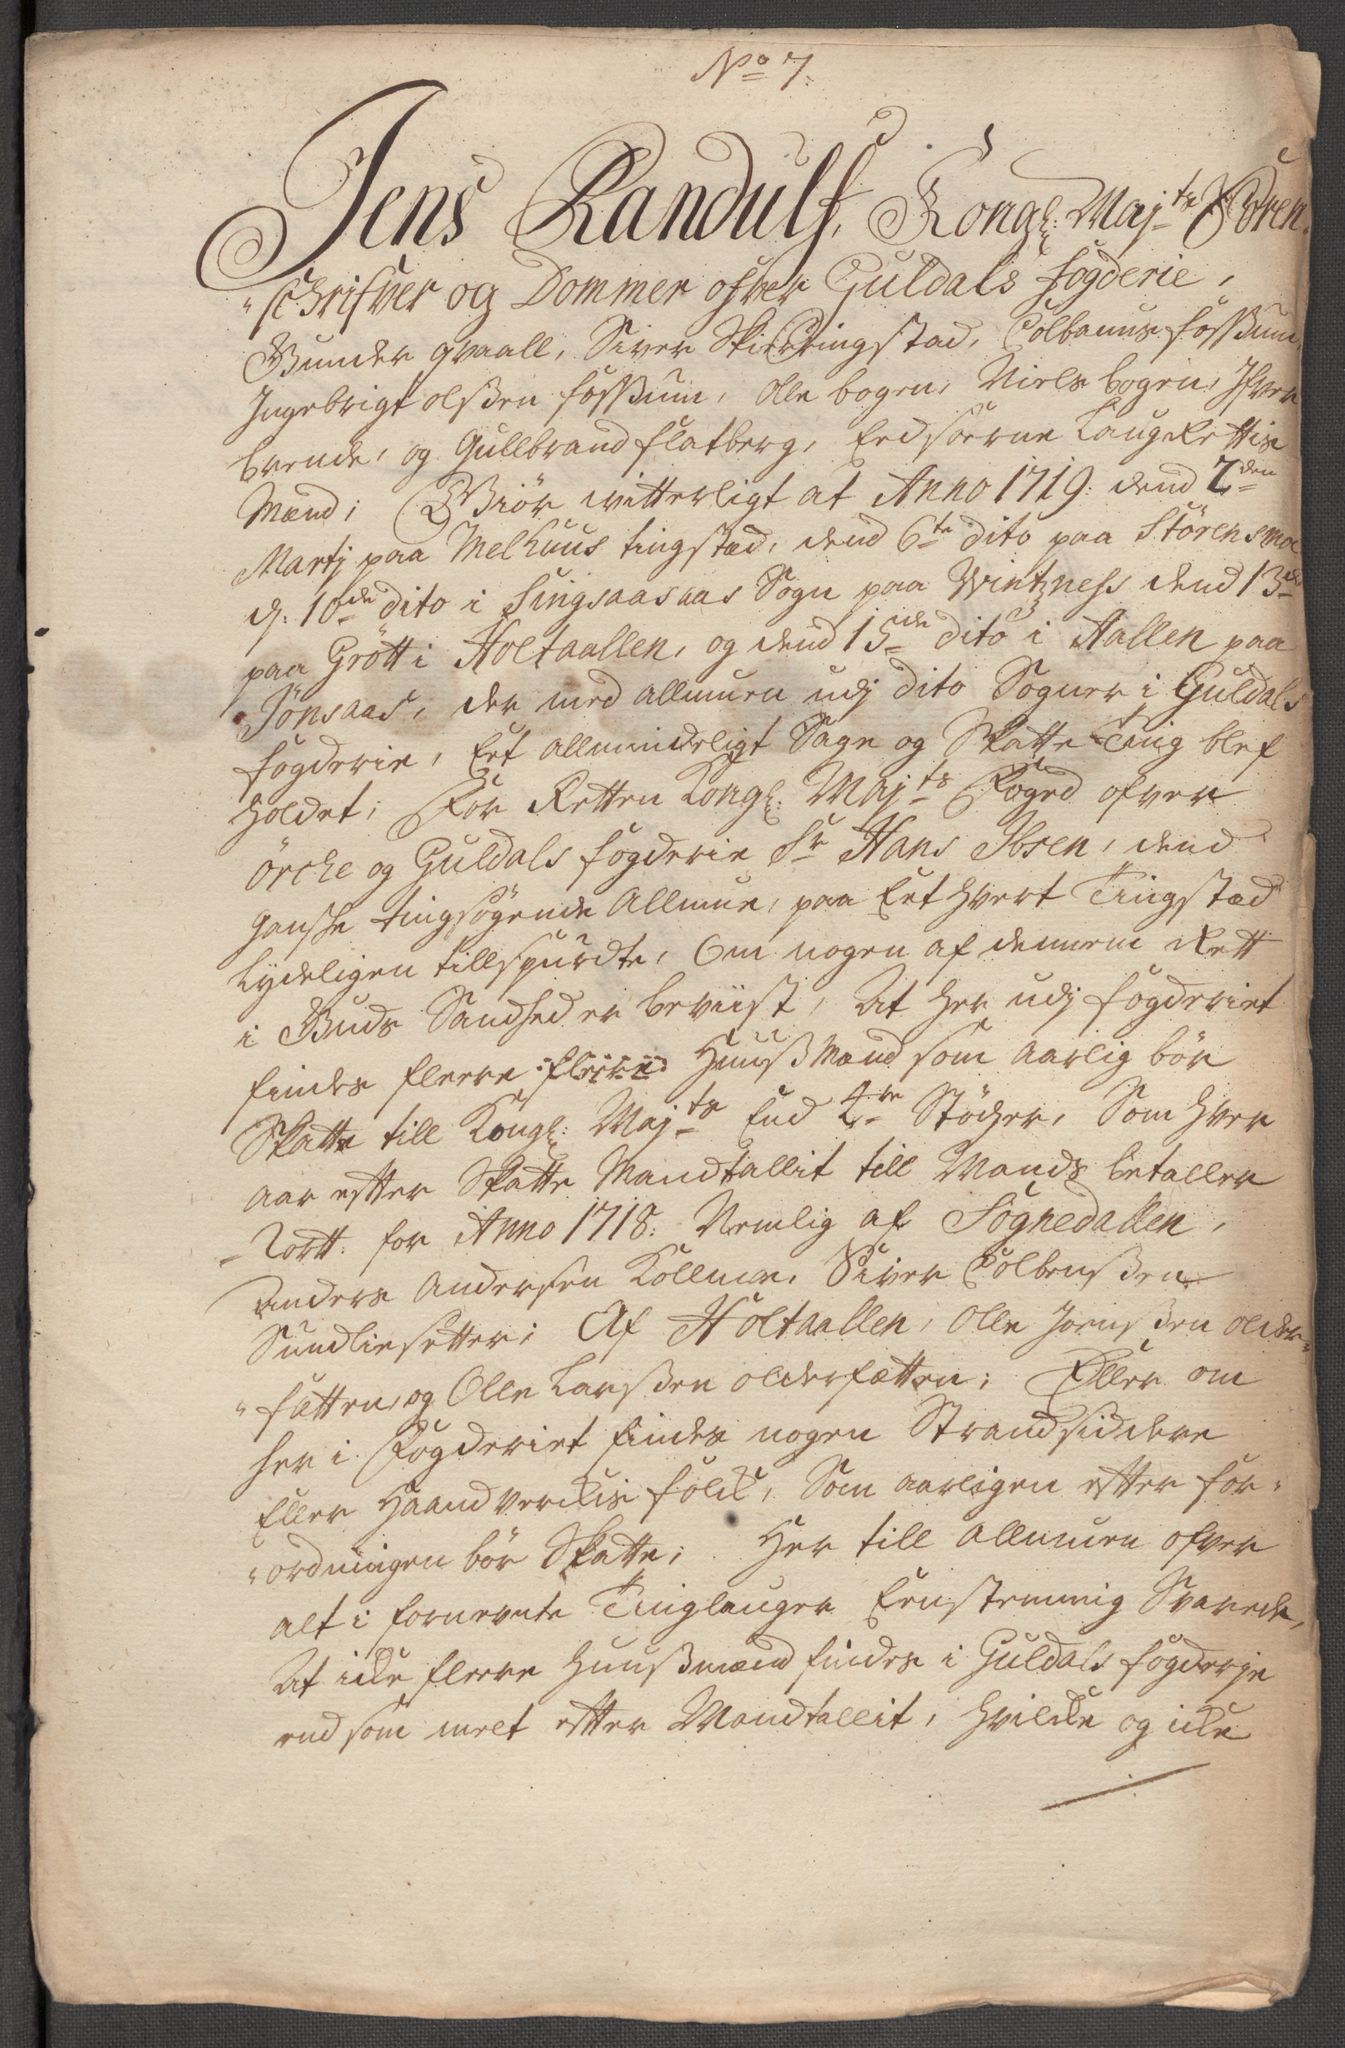 No 7.
Jens Randulf, Kongl: Maj:ts Soren-
"schrifver og Dommer ofver Guldals fogderie,
Gunder qvaall, Siver Skierringstad, Colbanus fosszum,
Ingebrigt olszen fosszum, Olle bogen, Niels bogen, Ifver
brende, og Gullbrand flatberg, Eedsorne Laug Rettis
Mænd; Giör witterligt at Anno 1719: dend 2den
Martj paa Melhuus tingstæd, dend 6te dito paa Störensmoe
d: 10de dito i Singsaasaas Sogn paa Wintzness dend 13de
paa Grött i Holtaallen, og dend 15de dito i Aallen paa
Jönsaas, der med allmuen udj dito Sogner i Guldals
fogderie, Eet allmindeligt Sage og Skatte Ting blef
holdet; For Retten Kongl: Maj:ts Foged ofver
örche og Guldals fogderie Sr Hans Ibsen, dend
gansche tingsögende Allmue, paa Eet hvert Tingstæd
lydeligen tillspurdte, Om nogen af dennem Rett
i Guds Sandhed er beviist, At her udj fogderiet
findes fleere fleere Huuszmænd som aarlig bör
Skatte till Kongl: Maj:ts End 4re Stöcher, Som hver
aar efter Skatte Mandtallit till Mands betaller
Rortt: for Anno 1718: Nemlig af Sognedallen,
anders Andersen Kollmoe, Siver Colbenszen
Sundliesetter; Af Holtaallen, Olle Joenszen older-
"fætten, og Olle Larszen olderfætten; Eller om
her i Fogderiet findes nogen Strandsiddere
Eller Haandverckis folck, Som aarligen efter for-
"ordningen bör Skatte; Her till allmuen ofver
alt i fornevnte Tinglauger Eenstemmig Svarede,
At icke fleere huuszmænd findes i Guldals fogderje
end som melt efter Mandtallit, hvilcke og icke